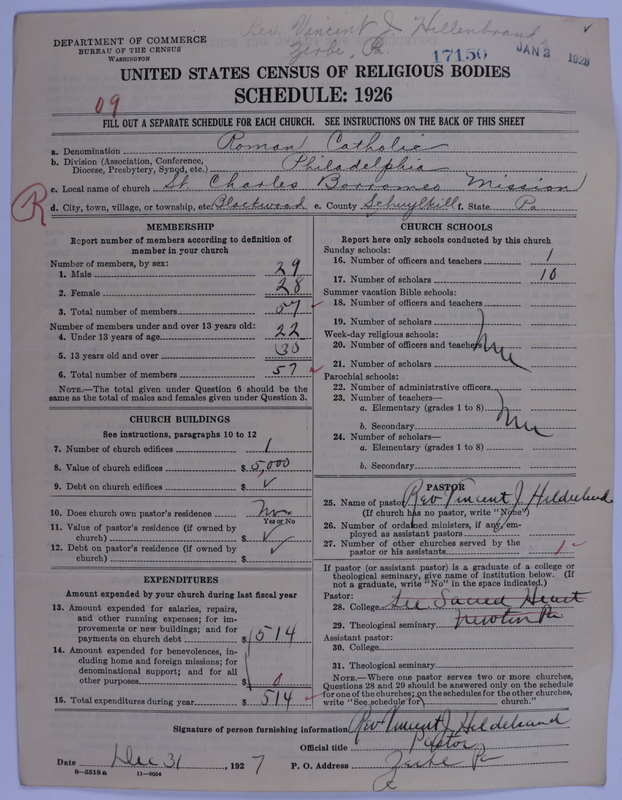 Rev. Vincent J Hillenbrand
Zerbe, Pa.
DEPARTMENT OF COMMERCE
BUREAU OF THE CENSUS
WASHINGTON
17150
JAN 3 1928
UNITED STATES CENSUS OF RELIGIOUS BODIES
SCHEDULE: 1926
09
FILL OUT A SEPARATE SCHEDULE FOR EACH CHURCH. SEE INSTRUCTIONS ON THE BACK OF THIS SHEET
a. Denomination Roman Catholic
b. Division (Association, Conference, Diocese, Presbytery, Synod, etc.) Philadelphia
c. Local name of church St. Charles Borromeo Mission
R
d. City, town, village, or township, etc. Blackwood e. County Schuylkill f. State Pa
MEMBERSHIP
Report number of members according to definition of
member in your church
Number of members, by sex:
1. Male 29
2. Female 28
3. Total number of members 57
Number of members under and over 13 years old:
4. Under 13 years of age 22
5. 13 years old and over 30
6. Total number of members 57
NOTE.—The total given under Question 6 should be the
same as the total of males and females given under Question 3.
CHURCH BUILDINGS
See instructions, paragraphs 10 to 12
7. Number of church edifices 1
8. Value of church edifices $ 5,000
9. Debt on church edifices $ ✓
10. Does church own pastor's residence No
Yes or No
11. Value of pastor's residence (if owned by
church) $ ✓
12. Debt on pastor's residence (if owned by
church) $ ✓
EXPENDITURES
Amount expended by your church during last fiscal year
13. Amount expended for salaries, repairs,
and other running expenses; for im-
provements or new buildings; and for
payments on church debt $ 514
14. Amount expended for benevolences, in-
cluding home and foreign missions; for
denominational support; and for all
other purposes $ 0
15. Total expenditures during year $ 514
CHURCH SCHOOLS
Report here only schools conducted by this church
Sunday schools:
16. Number of officers and teachers 1
17. Number of scholars 10
Summer vacation Bible schools:
18. Number of officers and teachers
19. Number of scholars
Week-day religious schools:
20. Number of officers and teachers
21. Number of scholars
Parochial schools:
22. Number of administrative officers
23. Number of teachers—
a. Elementary (grades 1 to 8)
b. Secondary
24. Number of scholars—
a. Elementary (grades 1 to 8)
b. Secondary
PASTOR
25. Name of pastor Rev Vincent J. Hildebrand
(If church has no pastor, write "None")
26. Number of ordained ministers, if any, em-
ployed as assistant pastors
27. Number of other churches served by the
pastor or his assistants 1
If pastor (or assistant pastor) is a graduate of a college or
theological seminary, give name of institution below. (If
not a graduate, write "No" in the space indicated.)
Pastor:
28. College See Sacred Heart
29. Theological seminary Newton Pa
Assistant pastor:
30. College
31. Theological seminary
NOTE.—Where one pastor serves two or more churches,
Questions 28 and 29 should be answered only on the schedule
for one of the churches; on the schedules for the other churches,
write "See schedule for church."
Signature of person furnishing information Rev Vincent J. Hildebrand
Official title Pastor
Date Dec 31, 1927 P. O. Address Zerbe Pa
8—5518 a 11—9034